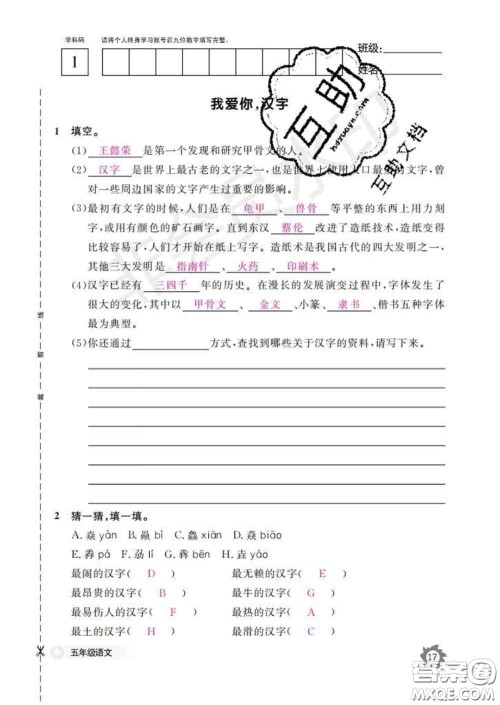 学科码 请将个人终身学习账号后九位数字填写完整。
1
班级:
姓名:
我爱你,汉字
1 填空。
(1) 王懿荣 是第一个发现和研究甲骨文的人。
(2) 汉字 是世界上最古老的文字之一,也是世界上使用人口最多的文字,曾
对一些周边国家的文字产生过重要的影响。
(3)最初有文字的时候,人们是在 龟甲 、 兽骨 等平整的东西上用力刻
字,或用有颜色的矿石画字。直到东汉 蔡伦 改造了造纸技术,造纸变得
比较容易了,人们才开始在纸上写字。造纸术是我国古代的四大发明之一,
其他三大发明是 指南针 、 火药 、 印刷术 。
(4)汉字已经有 三四千 年的历史。在漫长的发展演变过程中,字体发生了
很大的变化,其中以 甲骨文 、 金文 、小篆、 隶书 、楷书五种字体
最为典型。
(5)你还通过 方式,查找到哪些关于汉字的资料,请写下来。
2 猜一猜,填一填。
A. 焱 yàn B. 赑 bì C. 灥 xún D. 猋 biāo
E. 掱 pá F. 刕 lí G. 犇 bēn H. 垚 yáo
最闹的汉字( D ) 最无赖的汉字( E )
最昂贵的汉字( B ) 最牛的汉字( G )
最易伤人的汉字( F ) 最热的汉字( A )
最土的汉字( H ) 最滑的汉字( C )
五年级语文
17
互助
hdzuoye.com
互助文档
答案圈
MXQE.COM